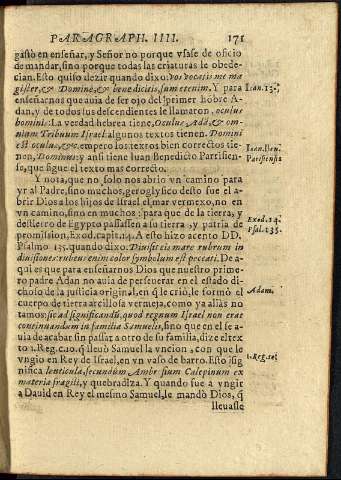 PARAGRAPH. IIII. 171
gastò en enseñar, y Señor no porque vsase de oficio
de mandar, sino porque todas las criaturas le obede-
cian. Esto quiso dezir quando dixo: Vos vocatis me ma
gister, & Domine, & bene dicitis, sum etenim. Y para
enseñarnos que auia de ser ojo del primer hõbre A-
dan, y de todos sus descendientes le llamaron, oculus
hominis: La verdad hebrea tiene, Oculus Adã, & om-
nium Tribuum Israel: algunos textos tienen. Domini
est oculus, &c. empero los textos bien correctos tie-
nen, Dominus: y ansi tiene Iuan Benedicto Parrisien-
se, que sigue el texto mas correcto.
Y nota, que no solo nos abrio vn camino para
yr al Padre, sino muchos, geroglyfico desto fue el a-
brir Dios a los hijos de Israel el mar vermexo, no en
vn camino, sino en muchos: para que de la tierra, y
destierro de Egypto passassen a su tierra, y patria de
promission, Exod. capit. 14. A esto hizo acento DD.
Psalmo 135. quando dixo. Diuisit eis mare rubrum in
diuisiones: rubeus enim color symbolum est peccati. De a-
qui es que para enseñarnos Dios que nuestro prime-
ro padre Adan no auia de perseuerar en el estado di-
choso de la justicia original, en q̃ le crió, le formó el
cuerpo de tierra arcillosa vermeja, como ya alias no
tamos: sic ad significandũ, quod regnum Israel non erat
continuandum in familia Samuelis, sino que en el se a-
uia de acabar sin passar a otro de su familia, dize el tex
to 1. Reg. c. 10. q̃ lleuò Samuel la vncion, con que le
vngio en Rey de Israel, en vn vaso de barro. Esto sig
nifica lenticula, secundùm Ambr sium Calepinum ex
materia fragili, y quebradiza. Y quando fue a vngir
a Dauid en Rey el mesmo Samuel, le mandò Dios, q̃
lleuasse
Ioan. 13.
Ioan. Ben.
Parisiensis
Exod. 14.
Psal. 135.
Adam.
1. Reg. 10